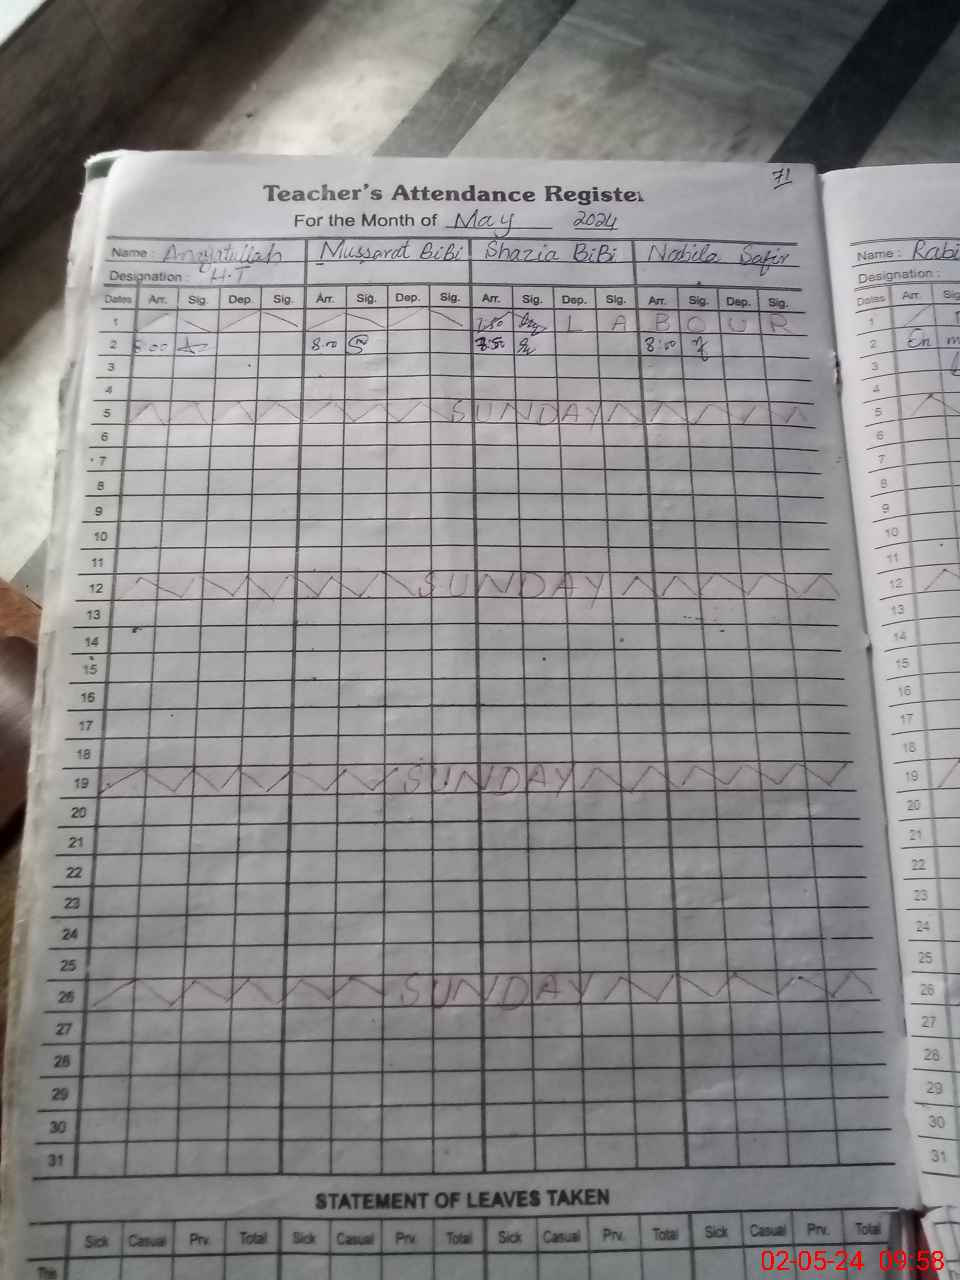 71
Teacher's Attendance Register
For the Month of May 2024
Name : Anayatullah Mussarat BiBi Shazia BiBi Nabila Safir
Designation : H.T
Dates Arr. Sig. Dep. Sig. Arr. Sig. Dep. Sig. Arr. Sig. Dep. Sig. Arr. Sig. Dep. Sig.
1 7:50 L A B O U R
2 8:00 8:00 7:50 8:00
3
4
5 SUNDAY
6
7
8
9
10
11
12 SUNDAY
13
14
15
16
17
18
19 SUNDAY
20
21
22
23
24
25
26 SUNDAY
27
28
29
30
31
STATEMENT OF LEAVES TAKEN
Sick Casual Prv. Total Sick Casual Prv. Total Sick Casual Prv. Total Sick Casual Prv. Total
This
Name : Rabi
Designation :
Dates Arr. Sig
1
2
3
4
5
6
7
8
9
10
11
12
13
14
15
16
17
18
19
20
21
22
23
24
25
26
27
28
29
30
31
02-05-24 09:58